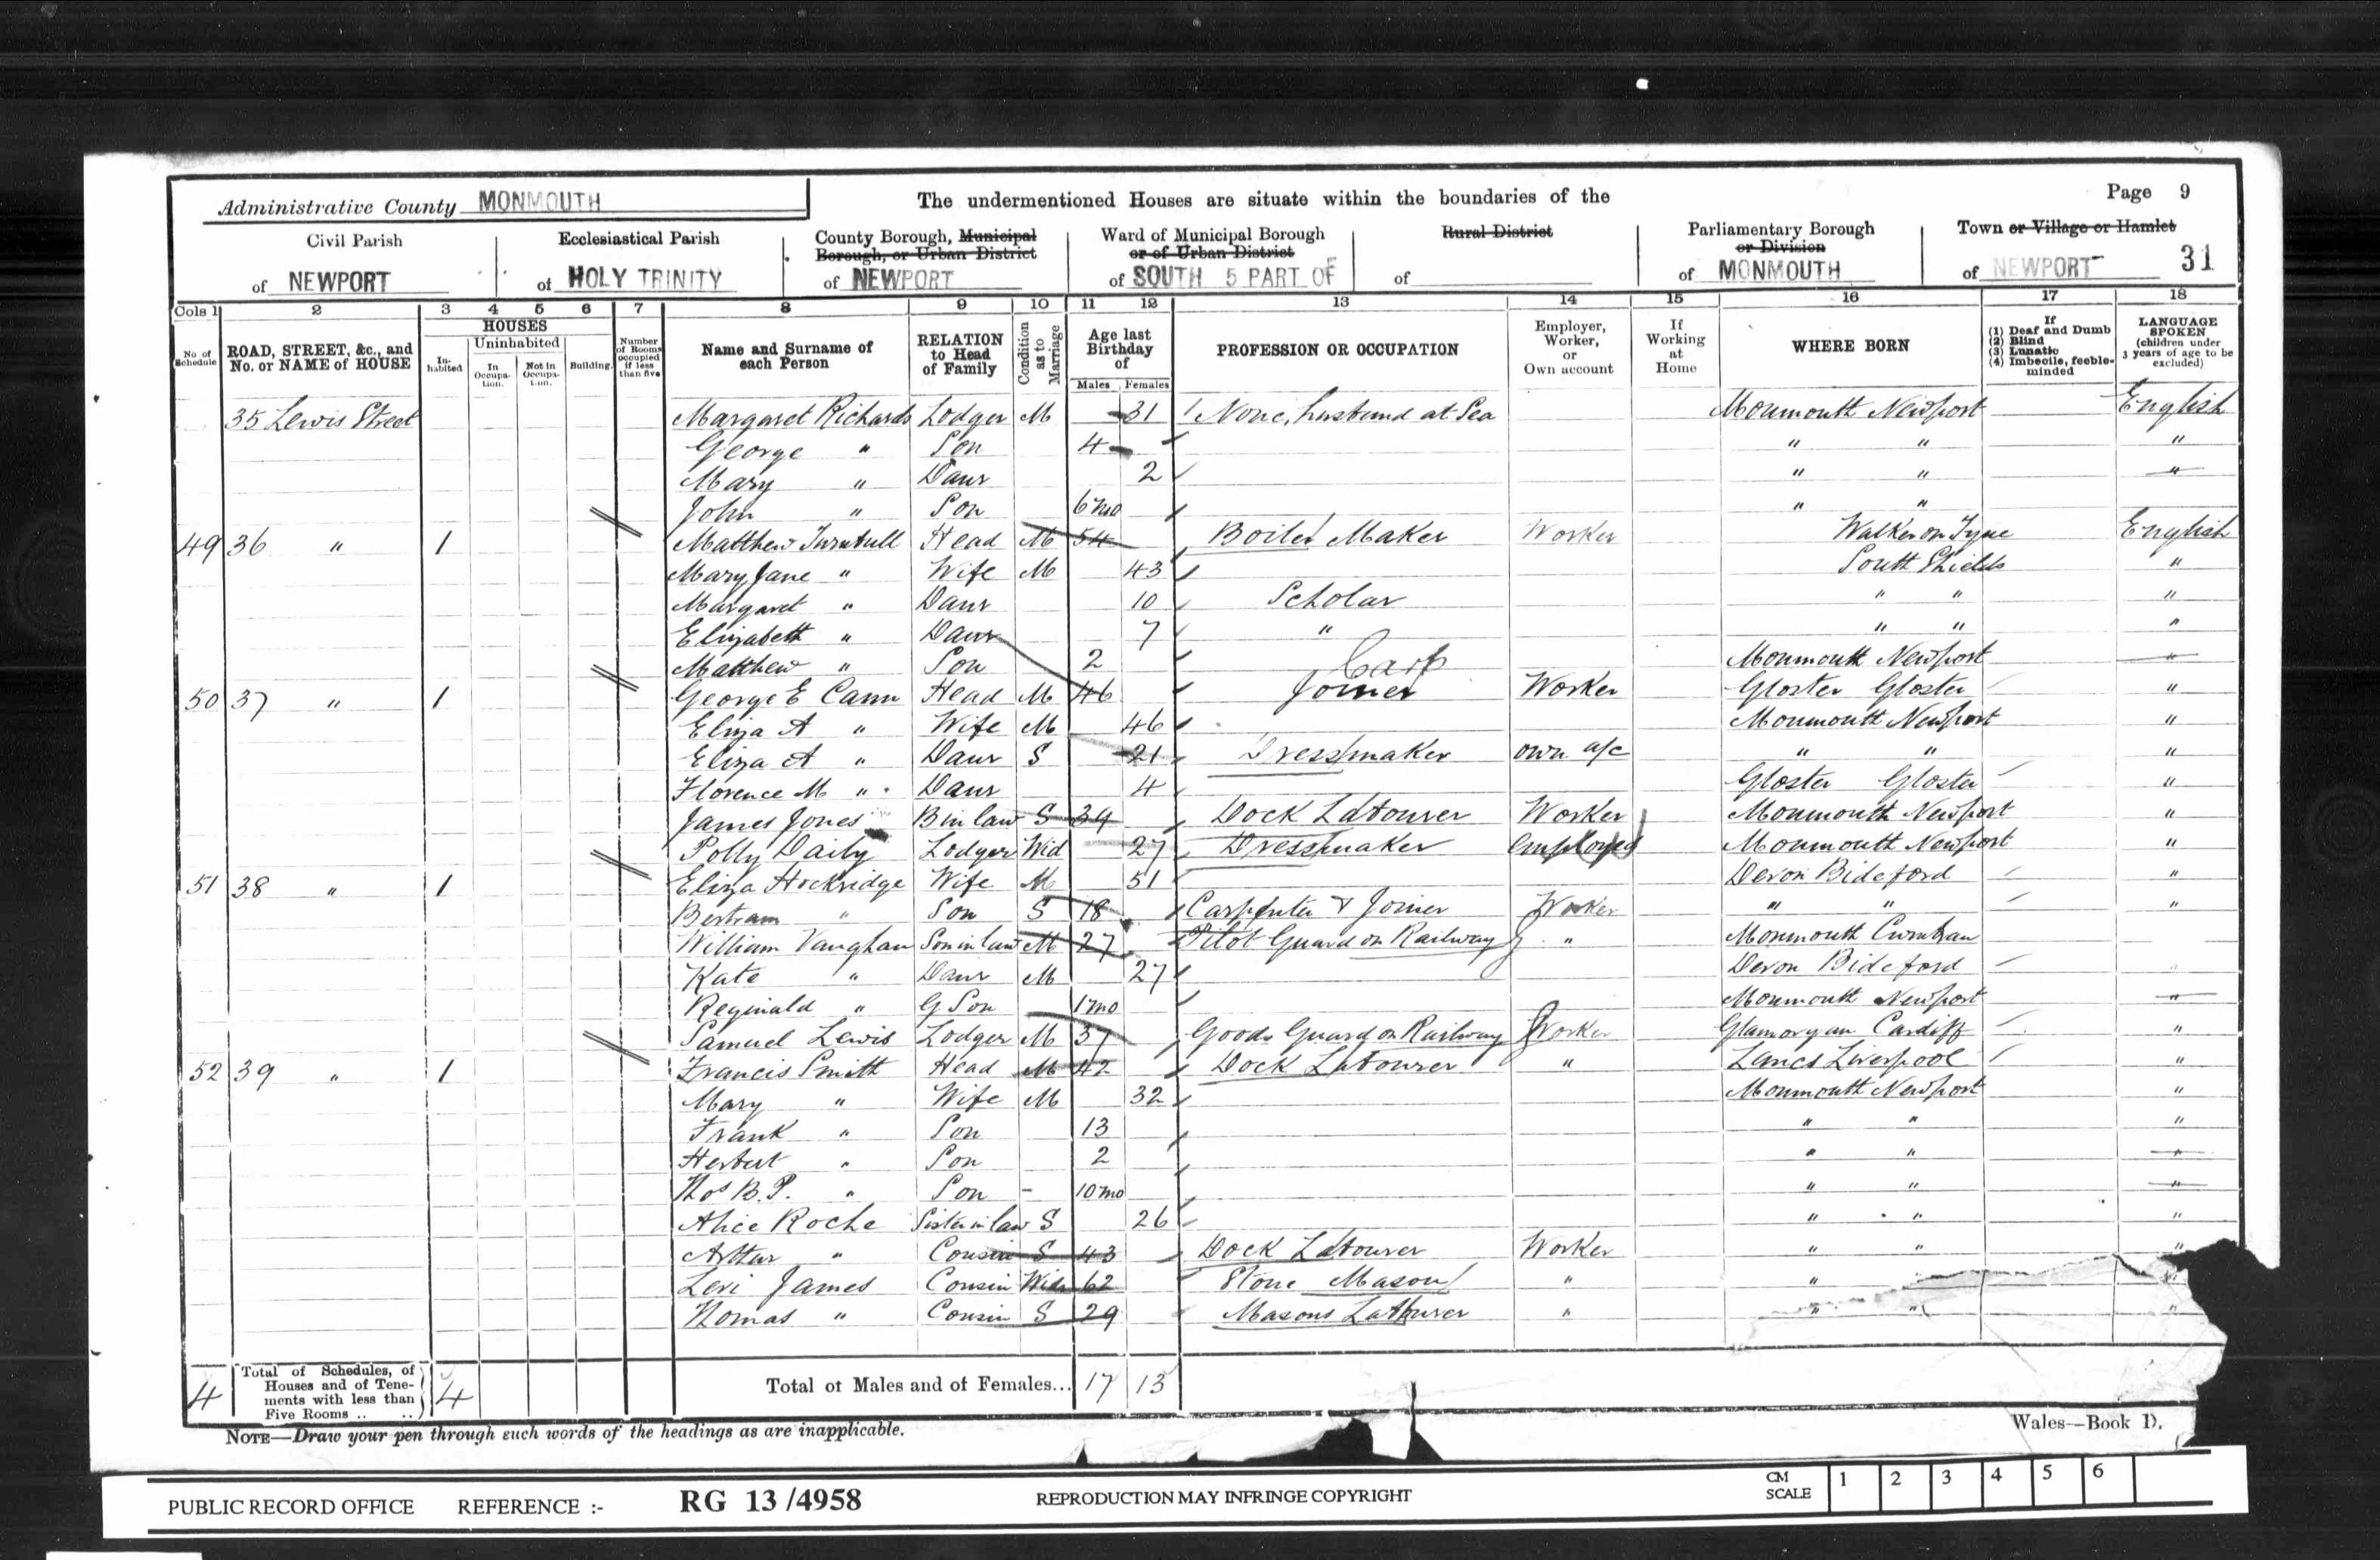 Administrative County MONMOUTH
The undermentioned Houses are situate within the boundaries of the
Page 9
Civil Parish of NEWPORT
Ecclesiastical Parish of HOLY TRINITY
County Borough, Municipal Borough, or Urban District of NEWPORT
Ward of Municipal Borough or of Urban District of SOUTH 5 PART OF
Rural District of
Parliamentary Borough or Division of MONMOUTH
Town or Village or Hamlet of NEWPORT
31
Cols 1 2 3 4 5 6 7 8 9 10 11 12 13 14 15 16 17 18
No of Schedule
ROAD, STREET, &c., and No. or NAME of HOUSE
HOUSES
Inhabited
Uninhabited
In Occupation.
Not in Occupation.
Building.
Number of Rooms occupied if less than five
Name and Surname of each Person
RELATION to Head of Family
Condition as to Marriage
Age last Birthday of
Males Females
PROFESSION OR OCCUPATION
Employer, Worker, or Own account
If Working at Home
WHERE BORN
If (1) Deaf and Dumb (2) Blind (3) Lunatic (4) Imbecile, feeble-minded
LANGUAGE SPOKEN (children under 3 years of age to be excluded)
35 Lewis Street Margaret Richards Lodger M 31 None, husband at Sea Monmouth Newport English
George " Son 4 " " "
Mary " Daur 2 " " "
John " Son 6 mo " "
49 36 " 1 Matthew Turnbull Head M 54 Boiler Maker Worker Walker on Tyne English
Mary Jane " Wife M 43 South Shields "
Margaret " Daur 10 Scholar " " "
Elizabeth " Daur 7 " " " "
Matthew " Son 2 Monmouth Newport "
Carp
50 37 " 1 George E Cann Head M 46 Joiner Worker Gloster Gloster "
Eliza A " Wife M 46 Monmouth Newport "
Eliza A " Daur S 21 Dressmaker own a/c " " "
Florence M " Daur 4 Gloster Gloster "
James Jones B in law S 39 Dock Labourer Worker Monmouth Newport "
Polly Daily Lodger Wid 27 Dressmaker Employed Monmouth Newport "
51 38 " 1 Eliza Hockridge Wife M 51 Devon Bideford "
Bertram " Son S 18 Carpenter & Joiner Worker " " "
William Vaughan Son in law M 27 Pilot Guard on Railway " Monmouth Cwmbran
Kate " Daur M 27 Devon Bideford
Reginald " G Son 1 mo Monmouth Newport "
Samuel Lewis Lodger M 37 Goods Guard on Railway Worker Glamorgan Cardiff "
52 39 " 1 Francis Smith Head M 42 Dock Labourer " Lancs Liverpool "
Mary " Wife M 32 Monmouth Newport "
Frank " Son 13 " " "
Herbert " Son 2 " " "
Thos B. P. " Son - 10 mo " " "
Alice Roche Sister in law S 26 " " "
Arthur " Cousin S 43 Dock Labourer Worker " " "
Levi James Cousin Widr 62 Stone Mason " " " "
Thomas " Cousin S 29 Masons Labourer " " " "
4 Total of Schedules, of Houses and of Tenements with less than Five Rooms .. ..} 4 Total of Males and of Females... 17 13
NOTE—Draw your pen through such words of the headings as are inapplicable.
Wales—Book 1).
PUBLIC RECORD OFFICE REFERENCE :- RG 13/4958 REPRODUCTION MAY INFRINGE COPYRIGHT CM SCALE 1 2 3 4 5 6